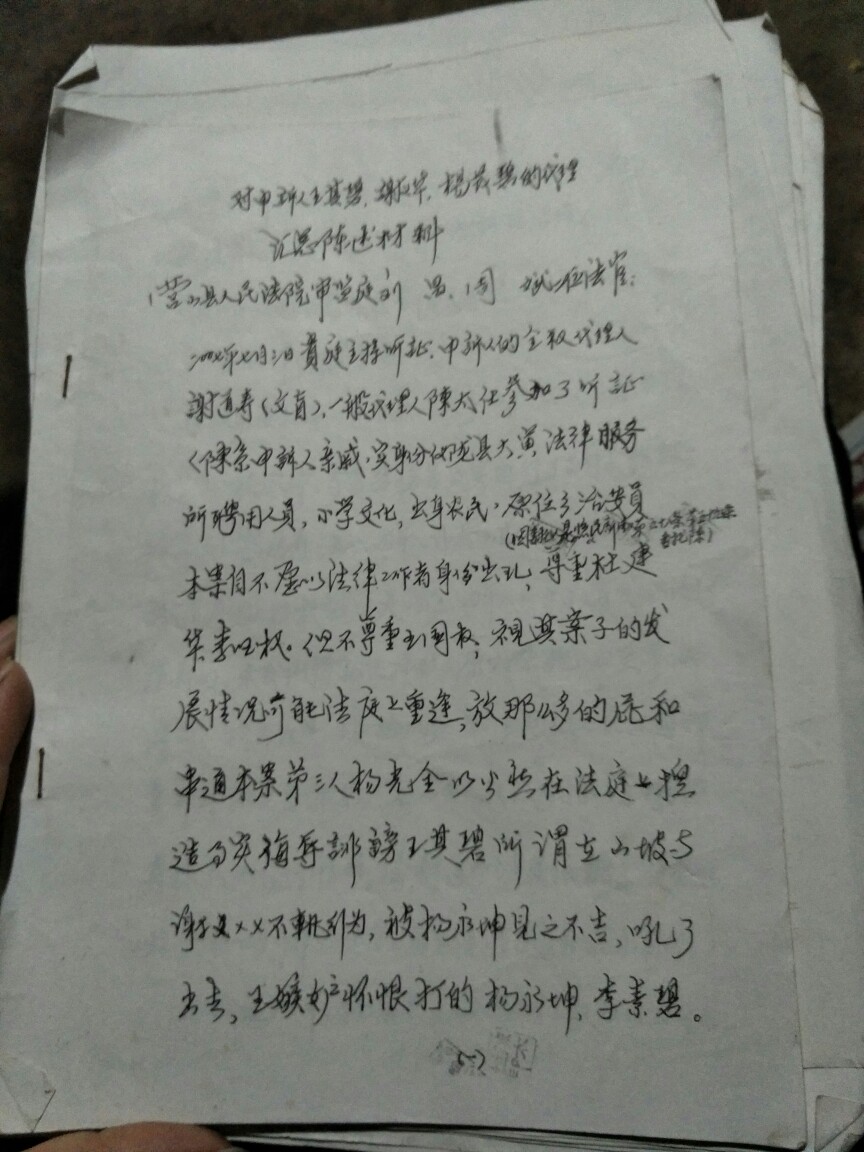 对申诉人王其碧、谢、杨茂碧的代理
汇总陈述材料
营山县人民法院审监庭刘 周 斌二位法官:
二00七年七月三日贵庭主持听证,申诉人的全权代理人
谢道寿(文盲),一般代理人陈大仕参加了听证
(陈系申诉人亲戚,实身份仪陇县大寅法律服务
所聘用人员,小学文化,出身农民,原任乡治安员
本案自不愿以法律工作者身份出礼,尊重杜建
华李 权。但不尊重王国权,视其案子的发
展情况可能法庭上重逢,放那么多的屁和
串通本案第三人杨光全以公然在法庭上捏
造事实侮辱诽谤王其碧所谓在山坡与
谢××不轨行为,被杨永坤见之不吉,吼了
出去,王嫉妒怀恨打的杨永坤、李素碧。
(一)